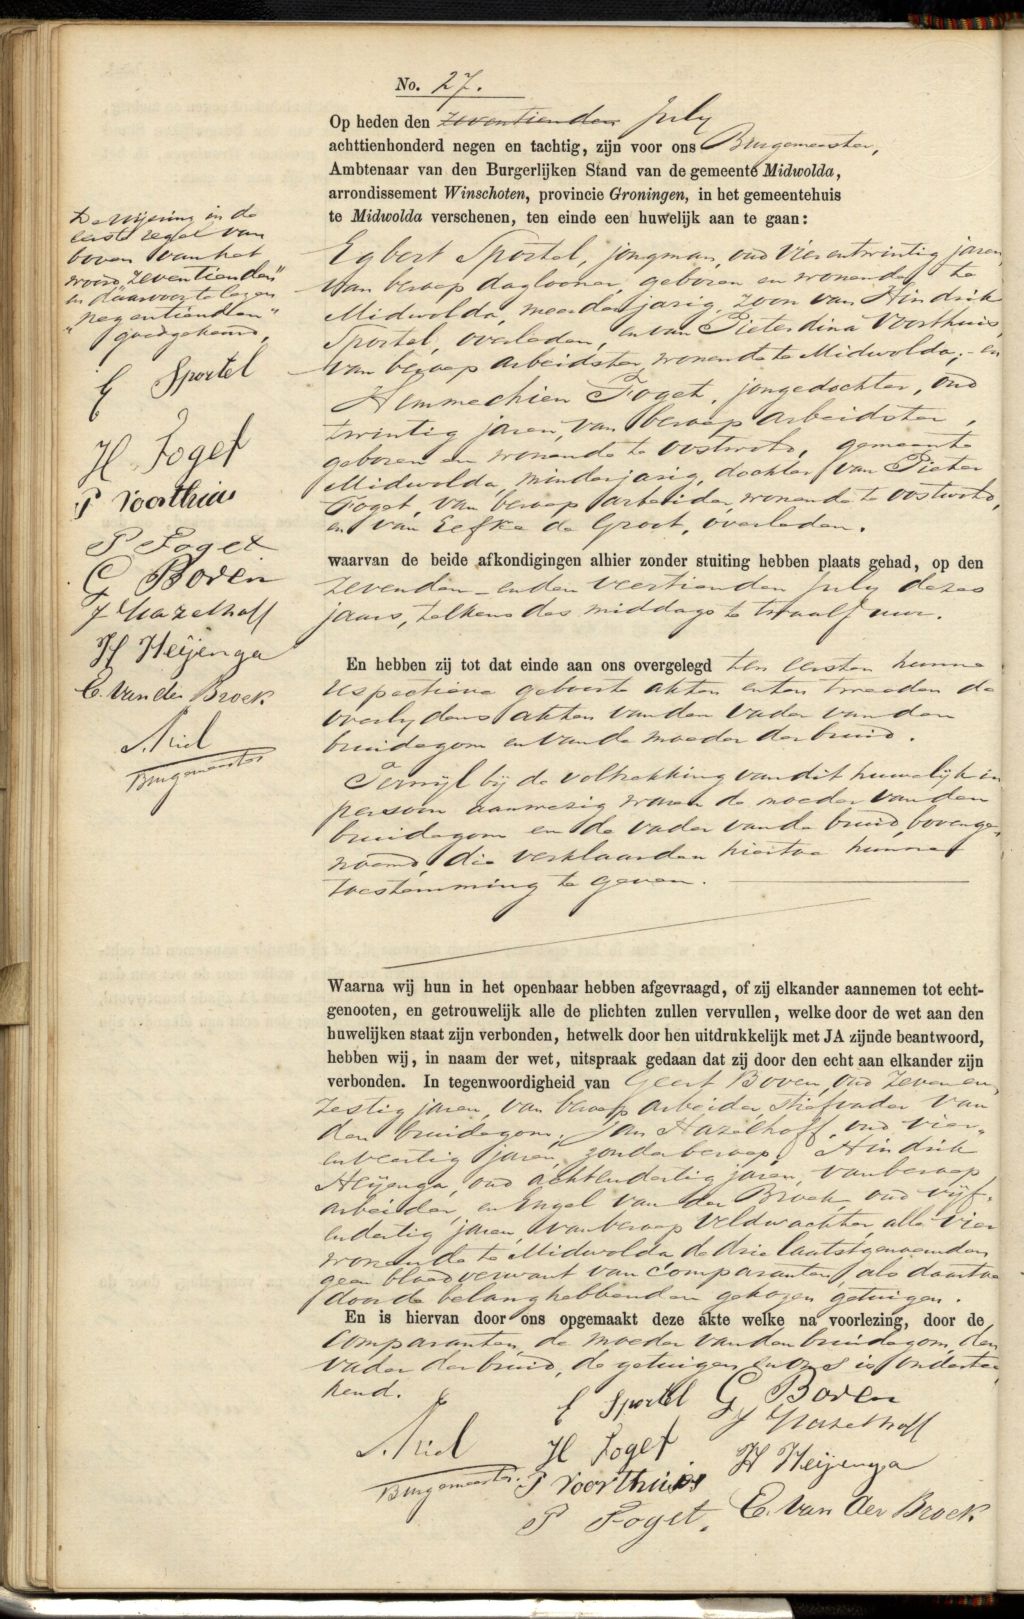 No. 27.
Op heden den zeventienden July
achttienhonderd negen en tachtig, zijn voor ons Burgemeester,
Ambtenaar van den Burgerlijken Stand van de gemeente Midwolda,
arrondissement Winschoten, provincie Groningen, in het gemeentehuis
te Midwolda verschenen, ten einde een huwelijk aan te gaan:
Egbert Sportel, jongman, oud vierentwintig jaren,
van beroep daglooner, geboren en wonende te
Midwolda, meerderjarig, zoon van Hindrik
Sportel, overleden, en van Pieterdina Voorthuis,
van beroep arbeidster, wonende te Midwolda; - en
Hemmechien Foget, jongedochter, oud
twintig jaren, van beroep arbeidster,
geboren en wonende te Oostwold, gemeente
Midwolda, minderjarig, dochter van Pieter
Foget, van beroep arbeider, wonende te Oostwold,
en van Eefke de Groot, overleden.
waarvan de beide afkondigingen alhier zonder stuiting hebben plaats gehad, op den
zevenden - en den veertienden July dezes
jaars, telkens des middags te twaalf uur.
En hebben zij tot dat einde aan ons overgelegd ten eersten hunne
respectieve geboorte akten en ten tweeden de
overlydens akten van den vader van den
bruidegom en van de moeder der bruid.
Terwijl bij de voltrekking van dit huwelijk in
persoon aanwezig waren de moeder van den
bruidegom en de vader van de bruid, bovenge-
noemd, die verklaarden hiertoe hunne
toestemming te geven.
Waarna wij hun in het openbaar hebben afgevraagd, of zij elkander aannemen tot echt-
genooten, en getrouwelijk alle de plichten zullen vervullen, welke door de wet aan den
huwelijken staat zijn verbonden, hetwelk door hen uitdrukkelijk met JA zijnde beantwoord,
hebben wij, in naam der wet, uitspraak gedaan dat zij door den echt aan elkander zijn
verbonden. In tegenwoordigheid van Geert Boven, oud zeven en
zestig jaren, van beroep arbeider, stiefvader van
den bruidegom; Jan Hazelhoff, oud vier-
enveertig jaren, zonder beroep; Hindrik
Heijenga, oud achtendertig jaren, van beroep
arbeider, en Engel van der Broek, oud vijf-
endertig jaren, van beroep veldwachter, alle vier
wonende te Midwolda, de drie laatstgenoemden
geen bloedverwant van comparanten, als daartoe
door de belanghebbenden gekozen getuigen.
En is hiervan door ons opgemaakt deze akte welke na voorlezing, door de
comparanten, de moeder van den bruidegom, den
vader der bruid, de getuigen en ons is onderte-
kend.
E Sportel
G Boven
J Hazelhoff
H Foget
H Heijenga
P Voorthuis
Burgemeester.
P Foget.
E. van der Broek
De wijziging in de
eerste regel van
boven van het
woord "zeventienden"
en daarvoor te lezen
"negentienden"
goedgekeurd,
E Sportel
H. Foget
P Voorthuis
P Foget
G Boven
J Hazelhoff
H Heijenga
E. van der Broek
Burgemeester